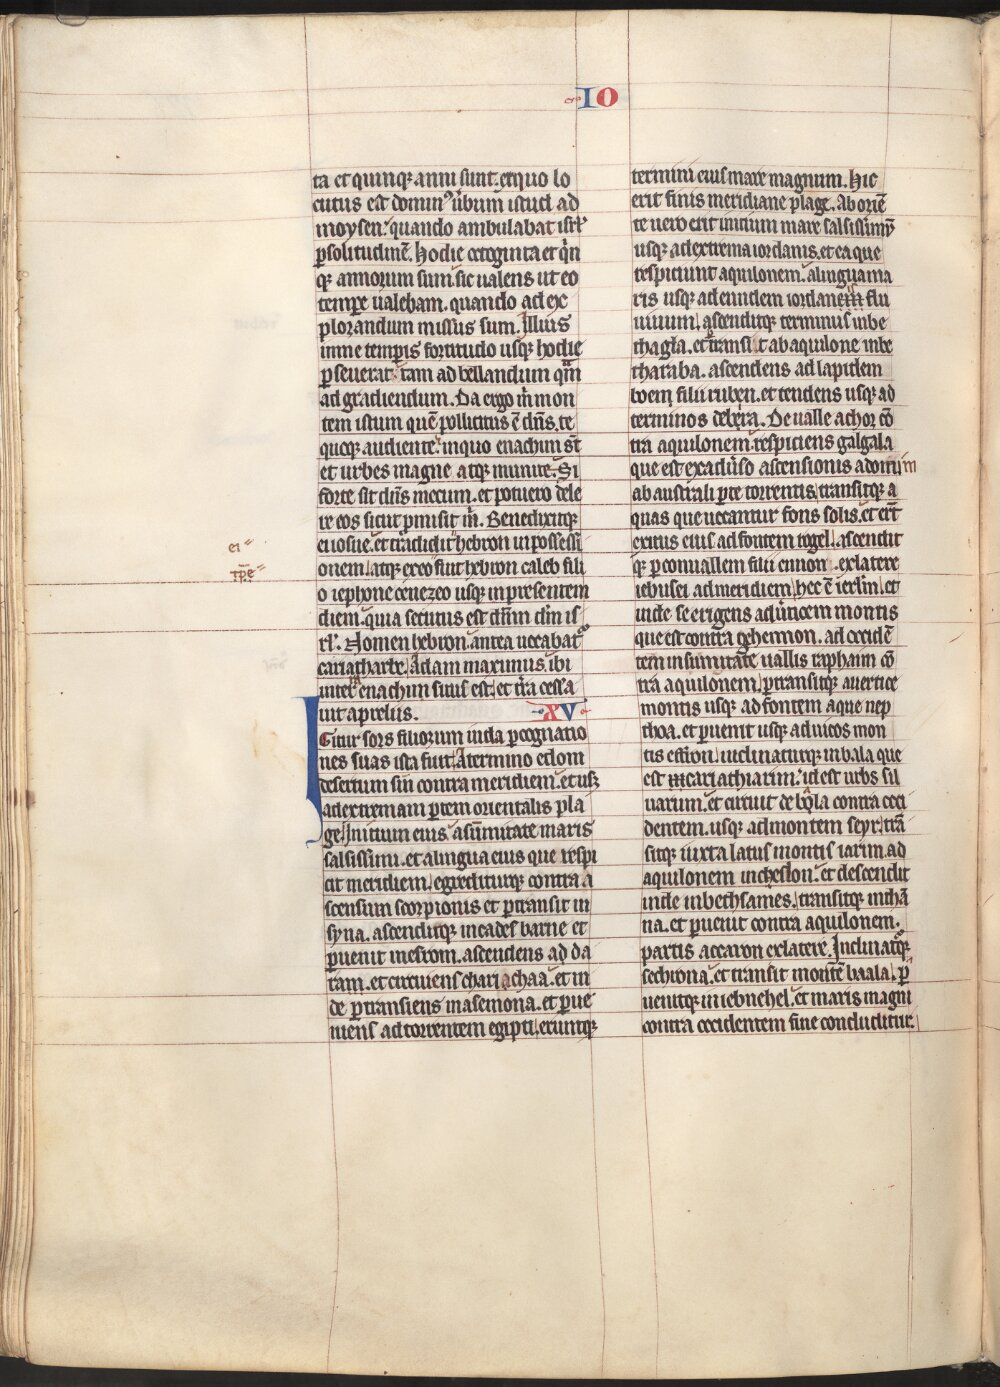 IO
ta et quinq; anni sunt. exquo lo
cutus est dominꝰ ūbum istud ad
moysen. quando ambulabat isrł
ꝑ solitudinē. Hodie octoginta et qͥn
q; annorum sum. sic ualens ut eo
tempꝛe ualebam. quando ad ex
plorandum missus sum. Illius
inme tempꝛis fortitudo usq; hodie
ꝑseuerat. tam ad bellandum qͣm
ad gradiendum. Da ergo m̄ mon
tem istum quē pollicitus ē dn̄s. te
quoq; audiente. inquo enachim sūt
et urbes magne atq; munite. Si
forte sit dn̄s mecum. et potuero dele
re eos sicut ꝓmisit m̄. Benedixitq;
ei iosue. et tradidit hebron in possessi
ei
tꝑe
onem. atq; exeo fuit hebron caleb fili
o iephone cenezeo usq; inpresentem
diem. quia secutus est dn̄m dm̄ is
rł. Nomen hebron antea uocabatᷣ
cariatharbe. Adam maximus ibi
inter enachim situs est. et tr̄a cessa
uit aprelus.
XV
Igitur sors filiorum iuda ꝑ cognatio
nes suas ista fuit. A termino edom
desertum sin contra meridiem. et usq;
ad extremam ꝑtem orientalis pla
ge. Initium eius asūmitate maris
salsissimi. et alingua eius que respi
cit meridiem. egrediturq; contra a
scensum scorpionis et ꝑtransit in
syna. ascenditq; incades barne et
ꝑuenit inesrom. ascendens ad da
ram. et circuiens chariachaa. et in
de ꝑtransiens inasemona. et ꝑue
niens ad torrentem egipti. eruntq;
termini eius mare magnum. Hic
erit finis meridiane plage. Ab oriē
te uero erit initium mare salsissimum
usq; ad extrema iordanis. et ea que
respiciunt aquilonem. alingua ma
ris usq; ad eundem iordanem flu
uium. ascenditq; terminus inbe
thagla. et transit ab aquilone inbe
tharaba. ascendens ad lapidem
boem filii ruben. et tendens usq; ad
terminos debera. De ualle achor cō
tra aquilonem. respiciens galgala
que est exaduͥso ascensionis adommim
ab australi ꝑte torrentis. transitq; a
quas que uocantur fons solis. et erūt
exitus eius ad fontem rogel. ascendit
q; ꝑ conuallem filii ennon exlatere
iebusei ad meridiem. hec ē ierlm̄. et
inde se erigens ad uͥticem montis
que est contra gehennon. ad occidē
tem insumitate uallis raphaim cō
tra aquilonem. ꝑtransitq; auertice
montis usq; ad fontem aque nep
thoa. et ꝑuenit usq; ad uicos mon
tis effron. inclinaturq; inbala que
est cariathiarim. id est urbs sil
uarum. et circuit de bala contra occi
dentem. usq; ad montem seyr. trā
sitq; iuxta latus montis iarim ad
aquilonem incheslon. et descendit
inde inbethsames. transitq; inthā
na. et ꝑuenit contra aquilonem.
partis accaron exlatere. Inclinatᷣq;
sechrona. et transit montē baala. ꝑ
uenitq; in iebnehel. et maris magni
contra occidentem fine concluditur.